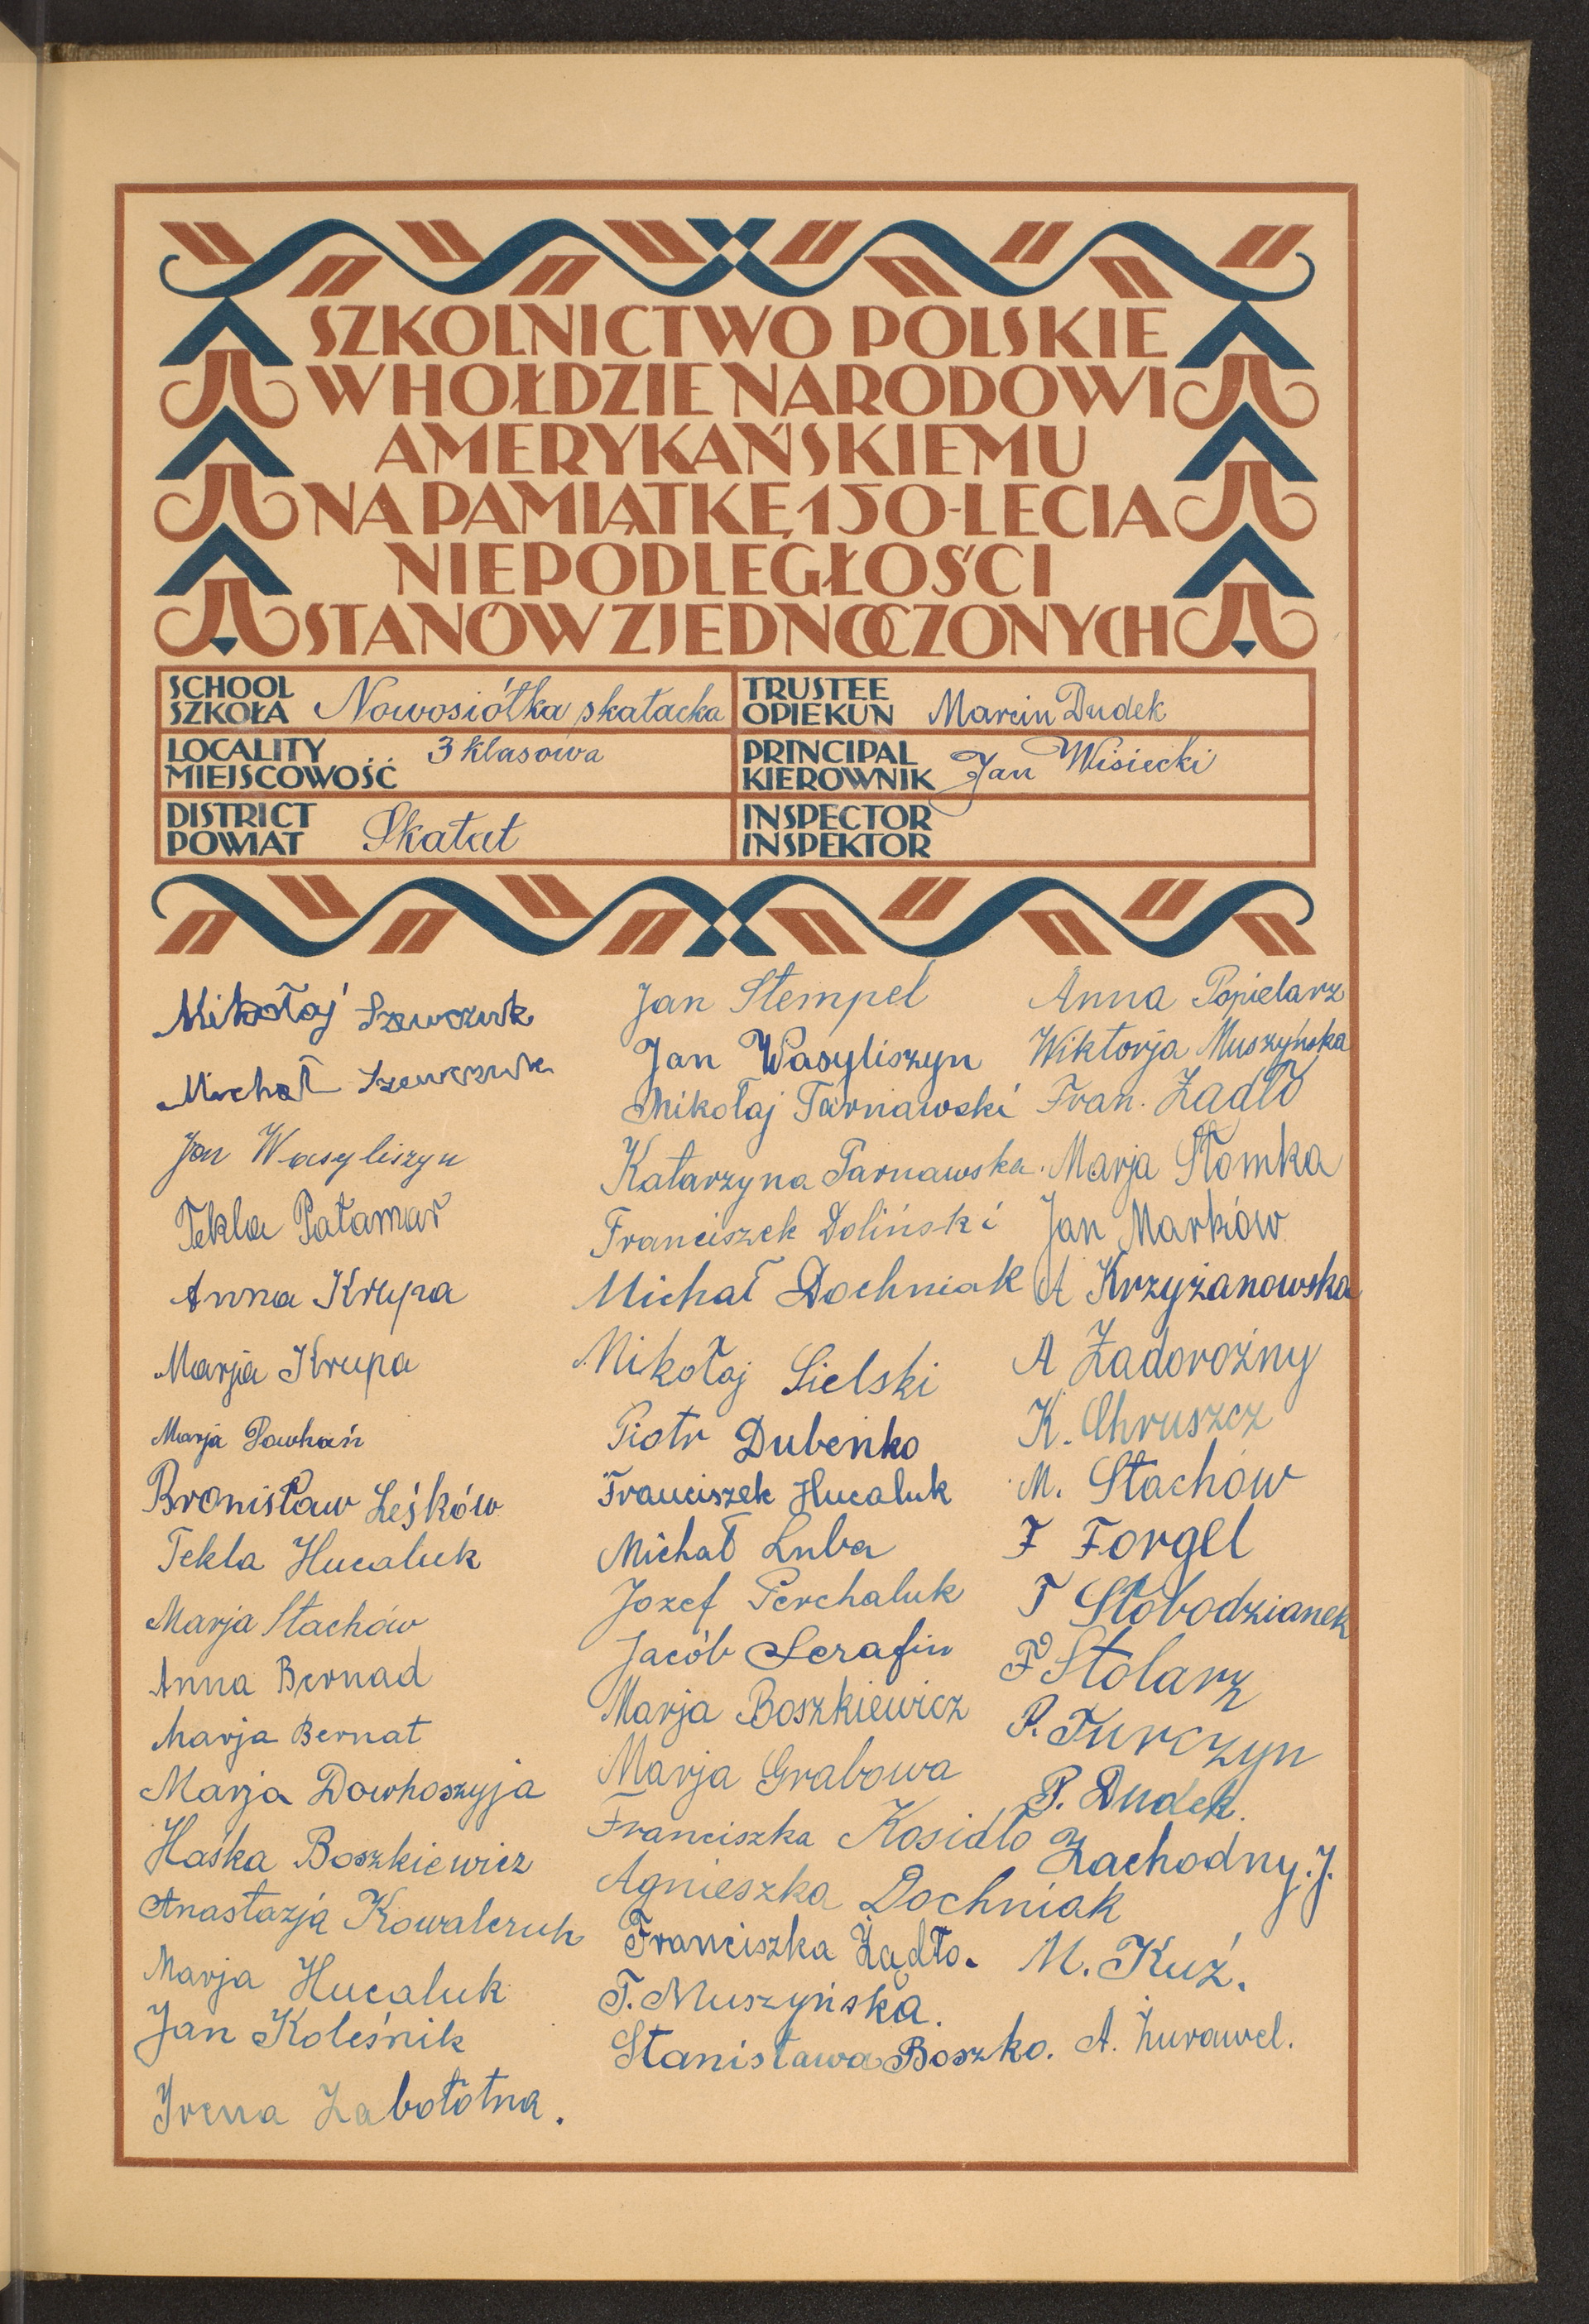 SZKOLNICTWO POLSKIE
W HOŁDZIE NARODOWI
AMERYKAŃSKIEMU
NA PAMIĄTKĘ 150-LECIA
NIEPODLEGŁOŚCI
STANÓW ZJEDNOCZONYCH
SCHOOL
SZKOŁA
Nowosiółka skałacka
LOCALITY
MIEJSCOWOŚĆ
3 klasowa
DISTRICT
POWIAT
Skałat
TRUSTEE
OPIEKUN
Marcin Dudek
PRINCIPAL
KIEROWNIK
Jan Wisiecki
INSPECTOR
INSPEKTOR
Mikołaj Szewczuk
Michał Szewczuk
Jan Wasyliszyn
Tekla Pałamar
Anna Krupa
Marja Krupa
Marja
Bronisław Leśków
Tekla Hucaluk
Marja Stachów
Anna Bernad
Marja Bernat
Marja Dowhoszyja
Haśka Boszkiewicz
Anastazja Kowalczuk
Marja Hucaluk
Jan Koleśnik
Irena Zabołotna.
Jan Stempel
Jan Wasyliszyn
Mikołaj Tarnawski
Katarzyna Tarnawska.
Franciszek Doliński
Michał Dochniak
Mikołaj Sielski
Piotr Dubeńko
Franciszek Hucaluk
Michał Luba
Jozef Perchaluk
Jacób Serafin
Marja Boszkiewicz
Marja Grabowa
Franciszka Kosidło
Agnieszka Dochniak
Franciszka Żądło.
T. Muszyńska.
Stanisława Boszko.
Anna Popielarz
Wiktorja Muszyńska
Fran. Żądło
Marja Słomka
Jan Marków
A Krzyżanowska
A Zadorożny
K. Chruszcz
M. Stachów
F Forgel
T Słobodzianek
F Stolarz
P. Turczyn
P. Dudek.
Zachodny. J.
M. Kuź.
A. Żurawel.